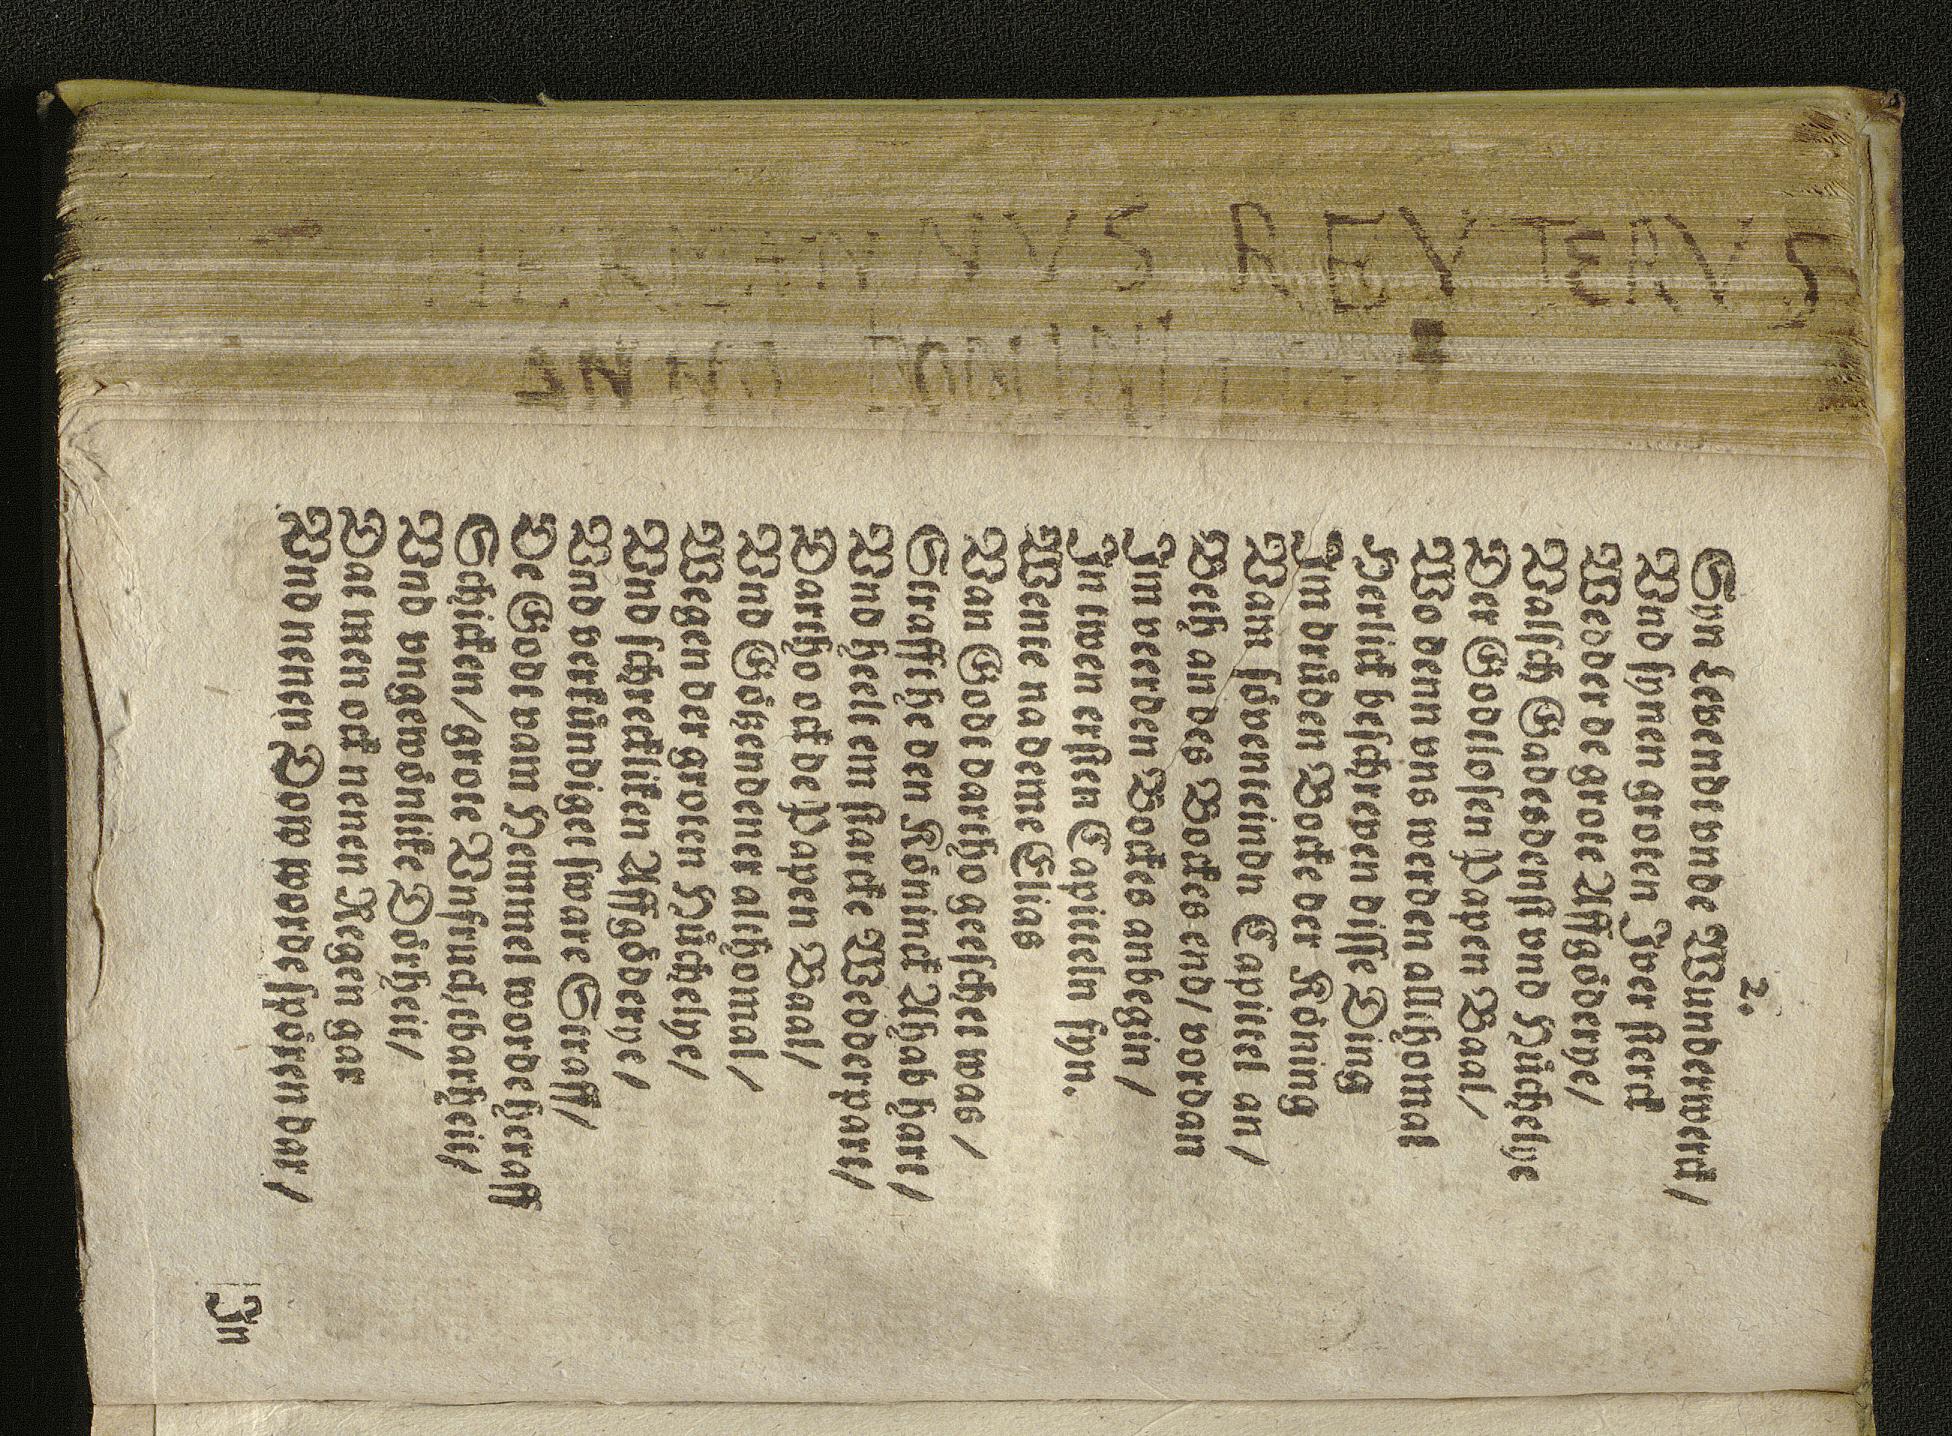 HERMANNVS REVTERVS
ANNO DOMINI
2.
Syn Levende vnde Wunderwerck/
Vnd synen groten Jver sterck
Wedder de grote Affgöderye/
Valsch Gadesdenst vnd Hüchelye
Der Godtlosen Papen Baal/
Wo denn vns werden allthomal
Herlick beschreven disse Ding
Im drüdden Bocke der Köning
Vam söventeindn Capittel an/
Beth an des Bockes end/ vordan
Im veerden Bockes anbegin/
In twen ersten Capitteln syn.
Wente na deme Elias
Van Godt dartho geeschet was/
Strafft he den Köninck Ahab hart/
Vnd heelt em starcke Wedderpart/
Dartho ock de Papen Baal/
Vnd Götzendener althomal/
Wegen der groten Hüchelye/
Vnd schrecklicken Affgöderye/
Vnd verkündiget sware Straff/
De Godt vam Hemmel worde heraff
Schicken/ grote Vnfruchtbarheit/
Vnd vngewönlike Dörheit/
Dat men ock nenen Regen gar
Vnd nenen Dow worde spören dar/
In